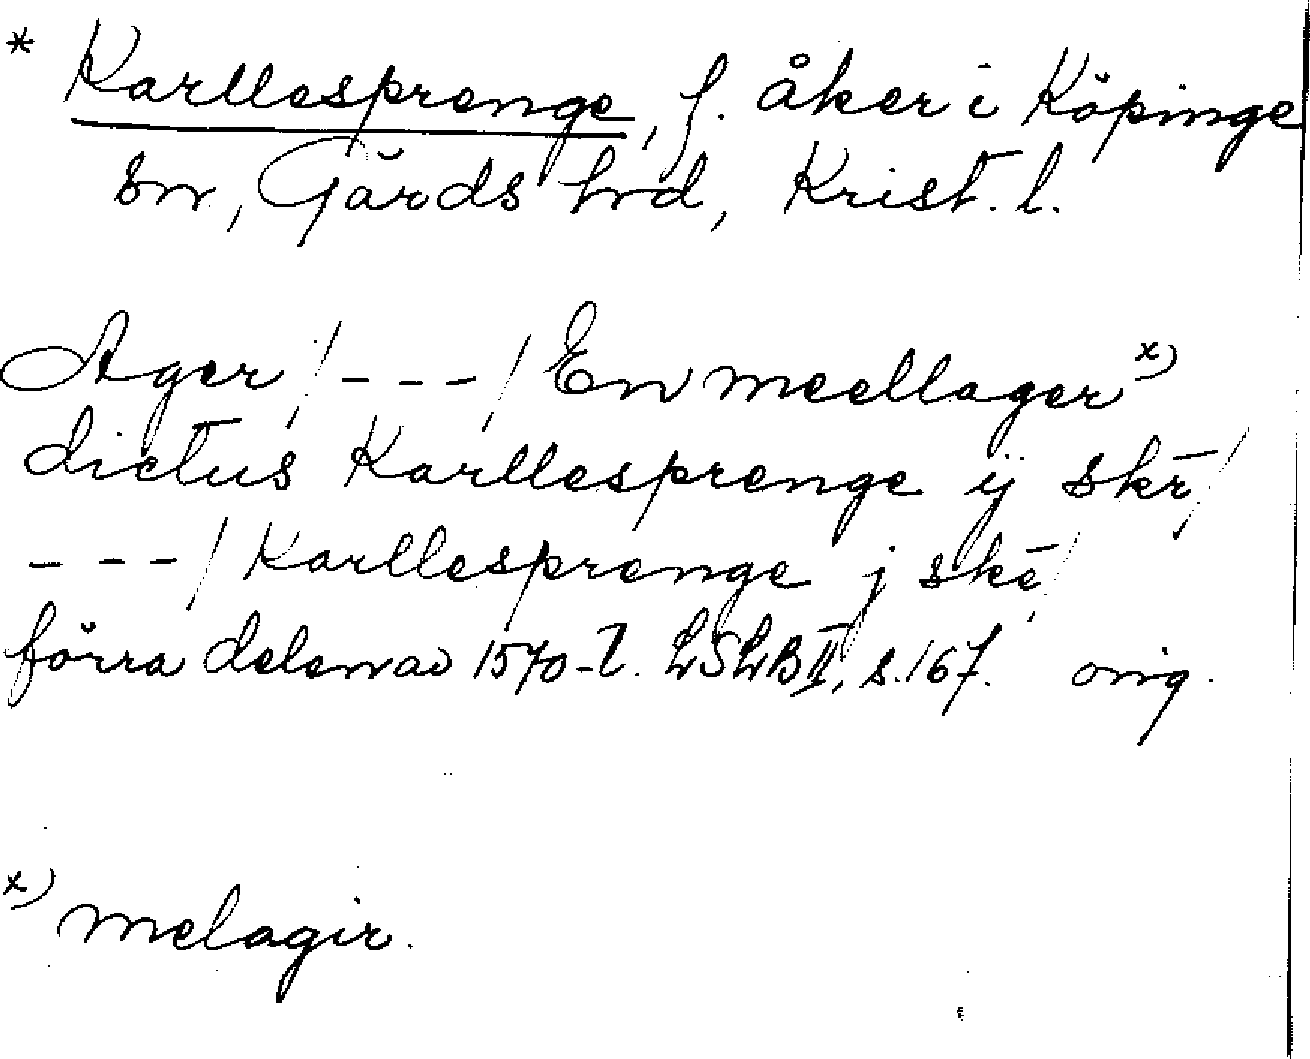 * Karllesprenge, f. åker i Köpinge
sn, Gärds hrd, Krist. l.
Ager /---/ En meellager x)
dictus Karllesprenge ij skr̄ /
---/ Karllesprenge j skē /
förra delen av 1570-t. LSLB II, s. 167. orig.
x) melagir.